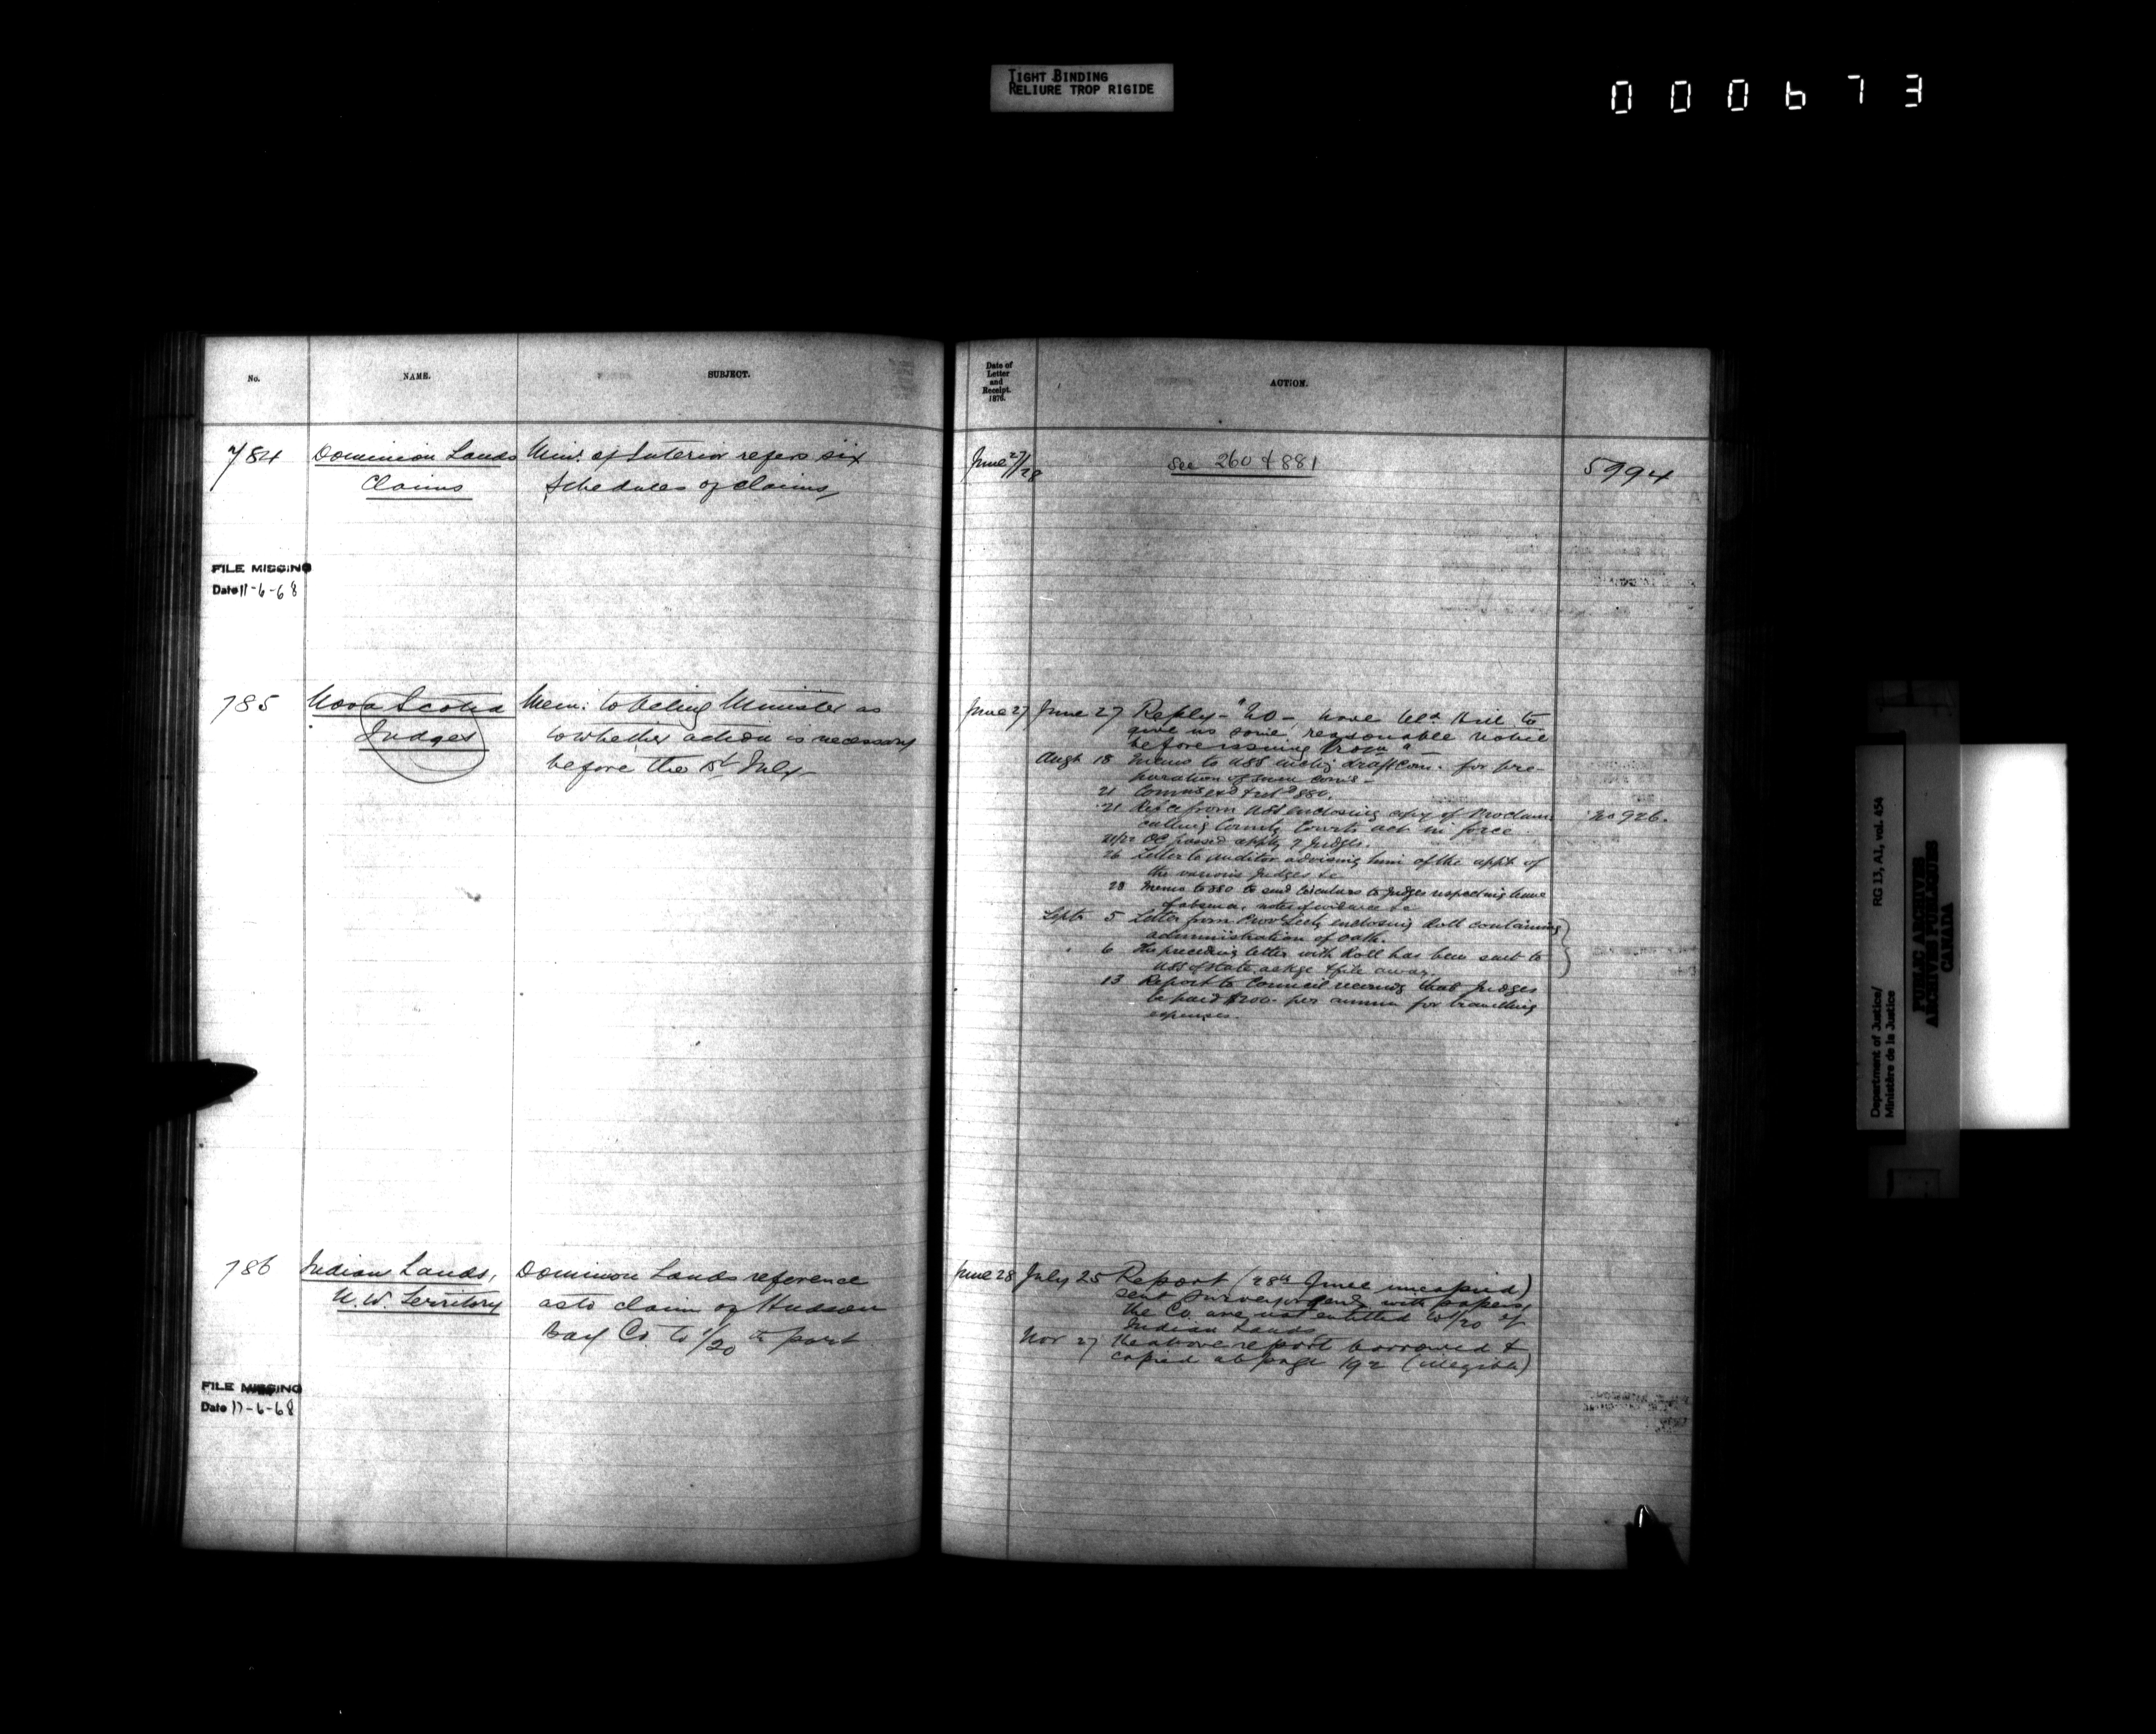 TIGHT BINDING
RELIURE TROP RIGIDE
000673
No.
NAME.
SUBJECT.
784
Dominion Lands
Claims
Min. of Interior refers six
Schedules of claims
FILE MISSING
Date 11-6-68
785
Nova Scotia
Judges
Mem: to Acting Minister as
to whether action is necessary
before the 1st July
786
Indian Lands,
N.W. Territory
Dominion Lands reference
as to claim of Hudson
Bay Co. to 1/20th part
FILE MISSING
Date 11-6-68
Date of
Letter
and
Receipt.
1876.
ACTION.
June 27/28
See 260 & 881
5994
June 27
June 27 Reply - "No -, have to
give us some reasonable notice
before issuing Procn"
Augt 18 Memo to USS draft Com. for pre-
paration of same coms -
21
21 from USS enclosing copy of Proclamn
calling County Courts act in force
No 926.
21/22 OC passed apptg 7 Judges.
26 Letter to Auditor advising him of the appt of
the various Judges &c
28 Memo to to send Circulars to Judges respecting leave
of absence, notes of evidence &c
Septr 5 Letter from Prov Secty enclosing Roll containing
administration of oath.
6 The preceding letter with Roll has been sent to
USS of State ackge & file away.
13 Report to Council recomdg that Judges
be paid $200 per annum for travelling
expenses.
June 28
July 25 Report (28th June uncopied)
sent Surveyor Genl with papers,
the Co. are not entitled to 1/20 of
Indian Lands
Nov 27 The above report borrowed &
copied at page 192 (illegible)
Department of Justice/
Ministère de la Justice
RG 13, A1, vol. 454
PUBLIC ARCHIVES
ARCHIVES PUBLIQUES
CANADA